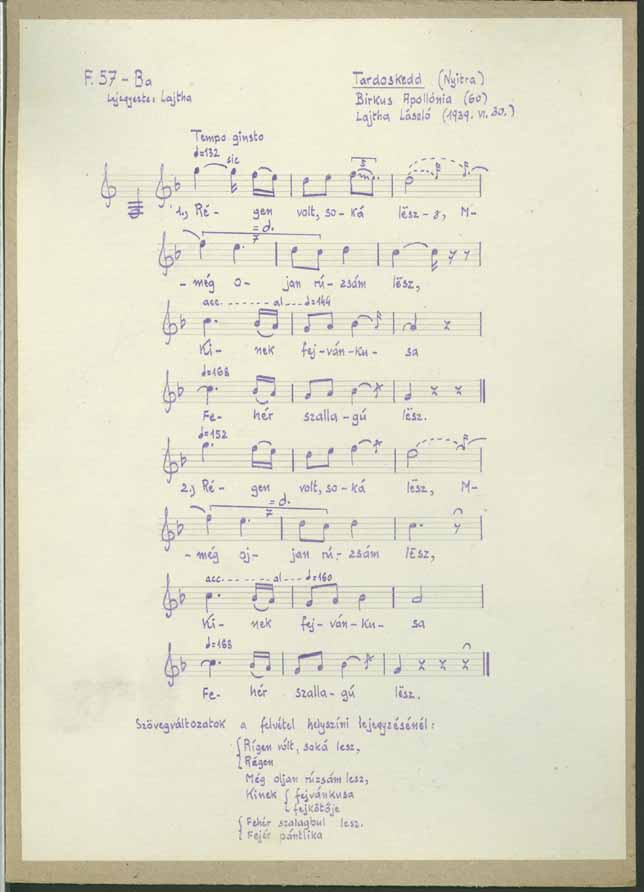 F. 57 - Ba
Tardoskedd (Nyitra)
Lejegyezte: Lajtha
Birkus Apollónia (60)
Lajtha László (1939. VI. 30.)
Tempo giusto
♩=132 sic 3
1., Ré- gen volt, so-ká lësz-z, M-
= ♩. 7
- még o- jan rú- zsám lësz,
acc. - - - - - - - - al - - - ♩=144
Ki- nek fej-ván-ku- sa
♩=168
Fe- hér szalla-gú lësz.
♩=152
2.) Ré- gen volt, so-ká lësz, M-
= ♩. 7
- még oj- jan rú- zsám lësz,
acc. - - - - - - - - al - - - ♩=160
Ki- nek fej-ván-ku- sa
♩=168
Fe- hér szalla-gú lësz.
Szövegváltozatok a felvétel helyszíni lejegyzésénél:
Rígen vólt, soká lesz,
Régen
Még oljan rúzsám lesz,
Kinek fejvánkusa
fejkötője
Fehér szalagbul lesz.
Fejér pántlika